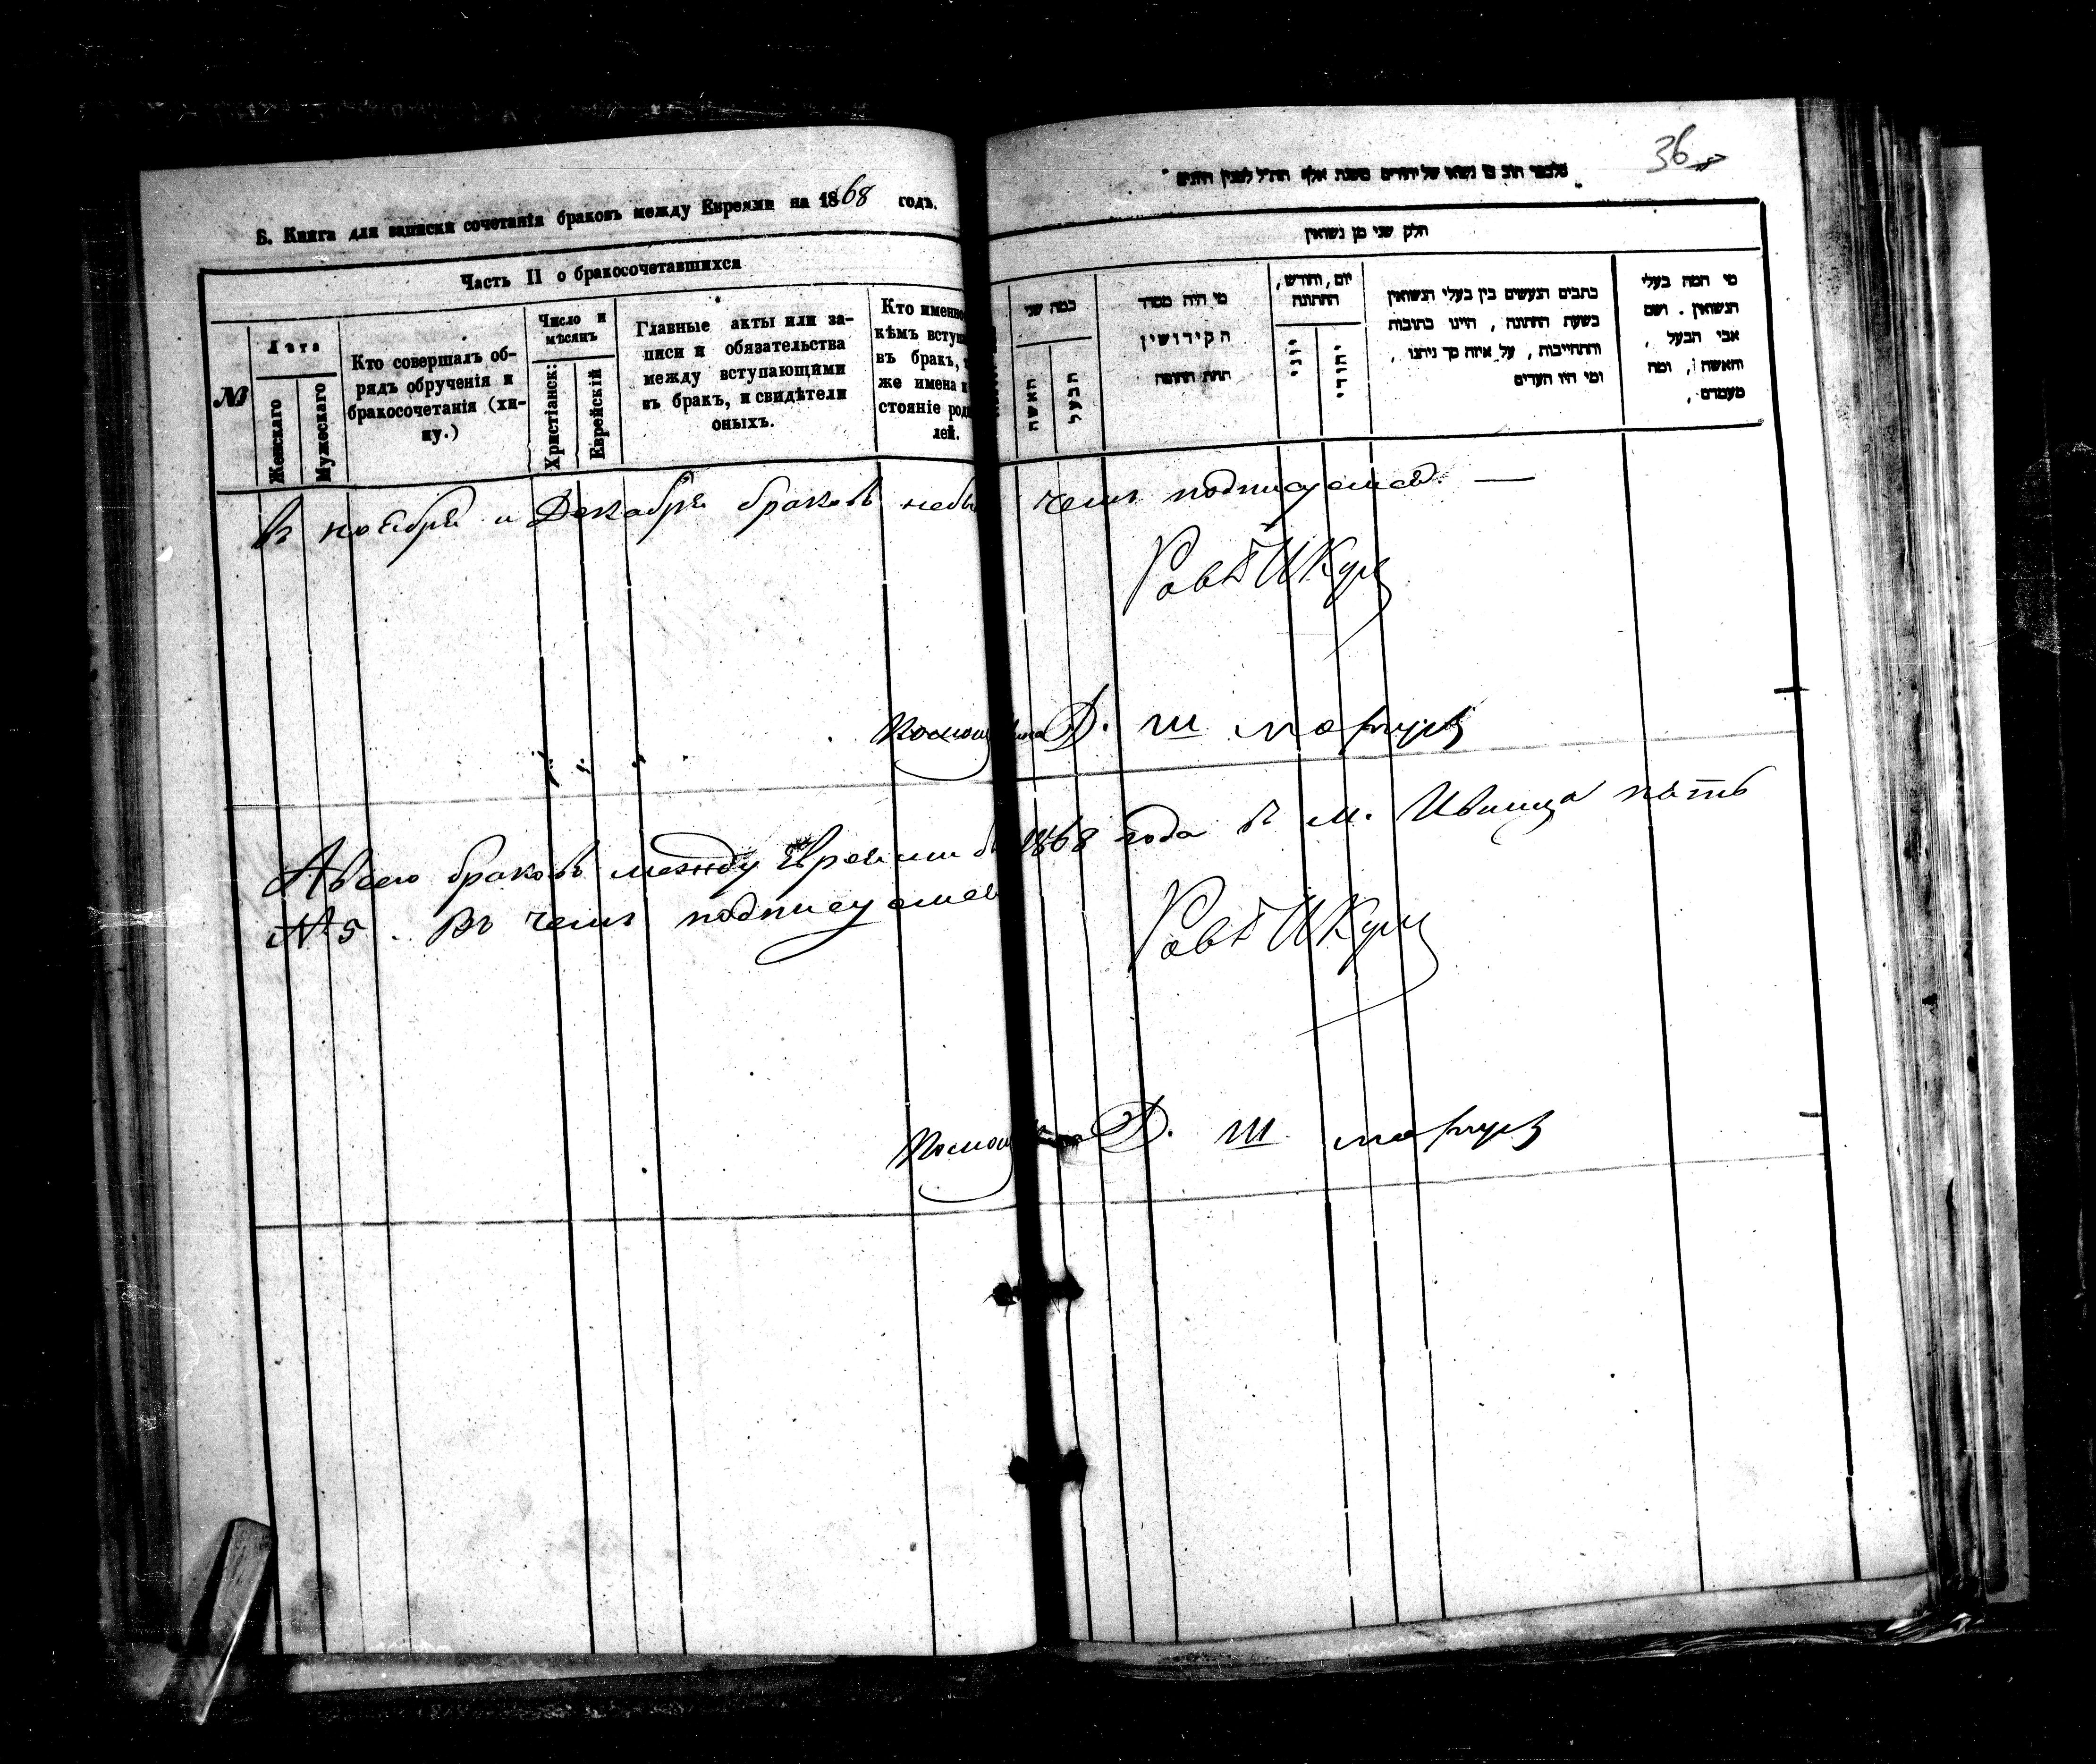 Б. Книга для записки сочетанія браковъ между Евреями на 1868 годъ.
Часть II о бракосочетавшихся
№
Лета
Женскаго
Мужескаго
Кто совершалъ об-
рядъ обрученія и
бракосочетанія (хи-
пу.)
Число и
мѣсяцъ
Христіанск:
Еврейскій
Главные акты или за-
писи и обязательства
между вступающими
въ бракъ, и свидѣтели
оныхъ.
Кто именно
кѣмъ вступ
въ бракъ,
же имена и
стояніе род
лей.
36
חלק שני מן נשואין
כמה שני
האשה
הבעל
מי היה מסדר
הקידושין
תחת החופה
יום, וחודש,
החתונה
יוני
יהודי
כתבים הנעשים בין בעלי הנשואין
בשעת החתונה, היינו כתובות
והתחייבות, על איזה סך ניתנו,
ומי היו העדים
מי המה בעלי
הנשואין. ושם
אבי הבעל,
והאשה, ומה
מעמדם,
въ ноябрѣ и Декабрѣ браковъ небы чемъ подписуемся. —
Равъ Шкур
Д. Ш
А всего браковъ между Евреями 1868 года въ м. Ивница пять
№ 5. Въ чемъ подписуемся
Равъ Шкур
Д. Ш